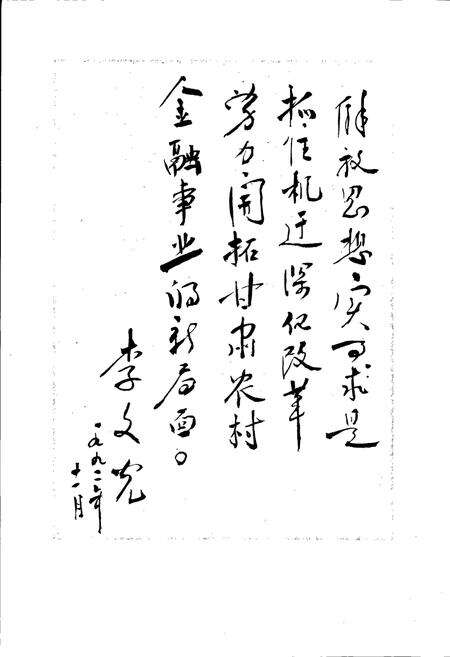 解放思想实事求是
抓住机遇深化改革
努力开拓甘肃农村
金融事业的新局面。
李文光
一九九二年
十一月